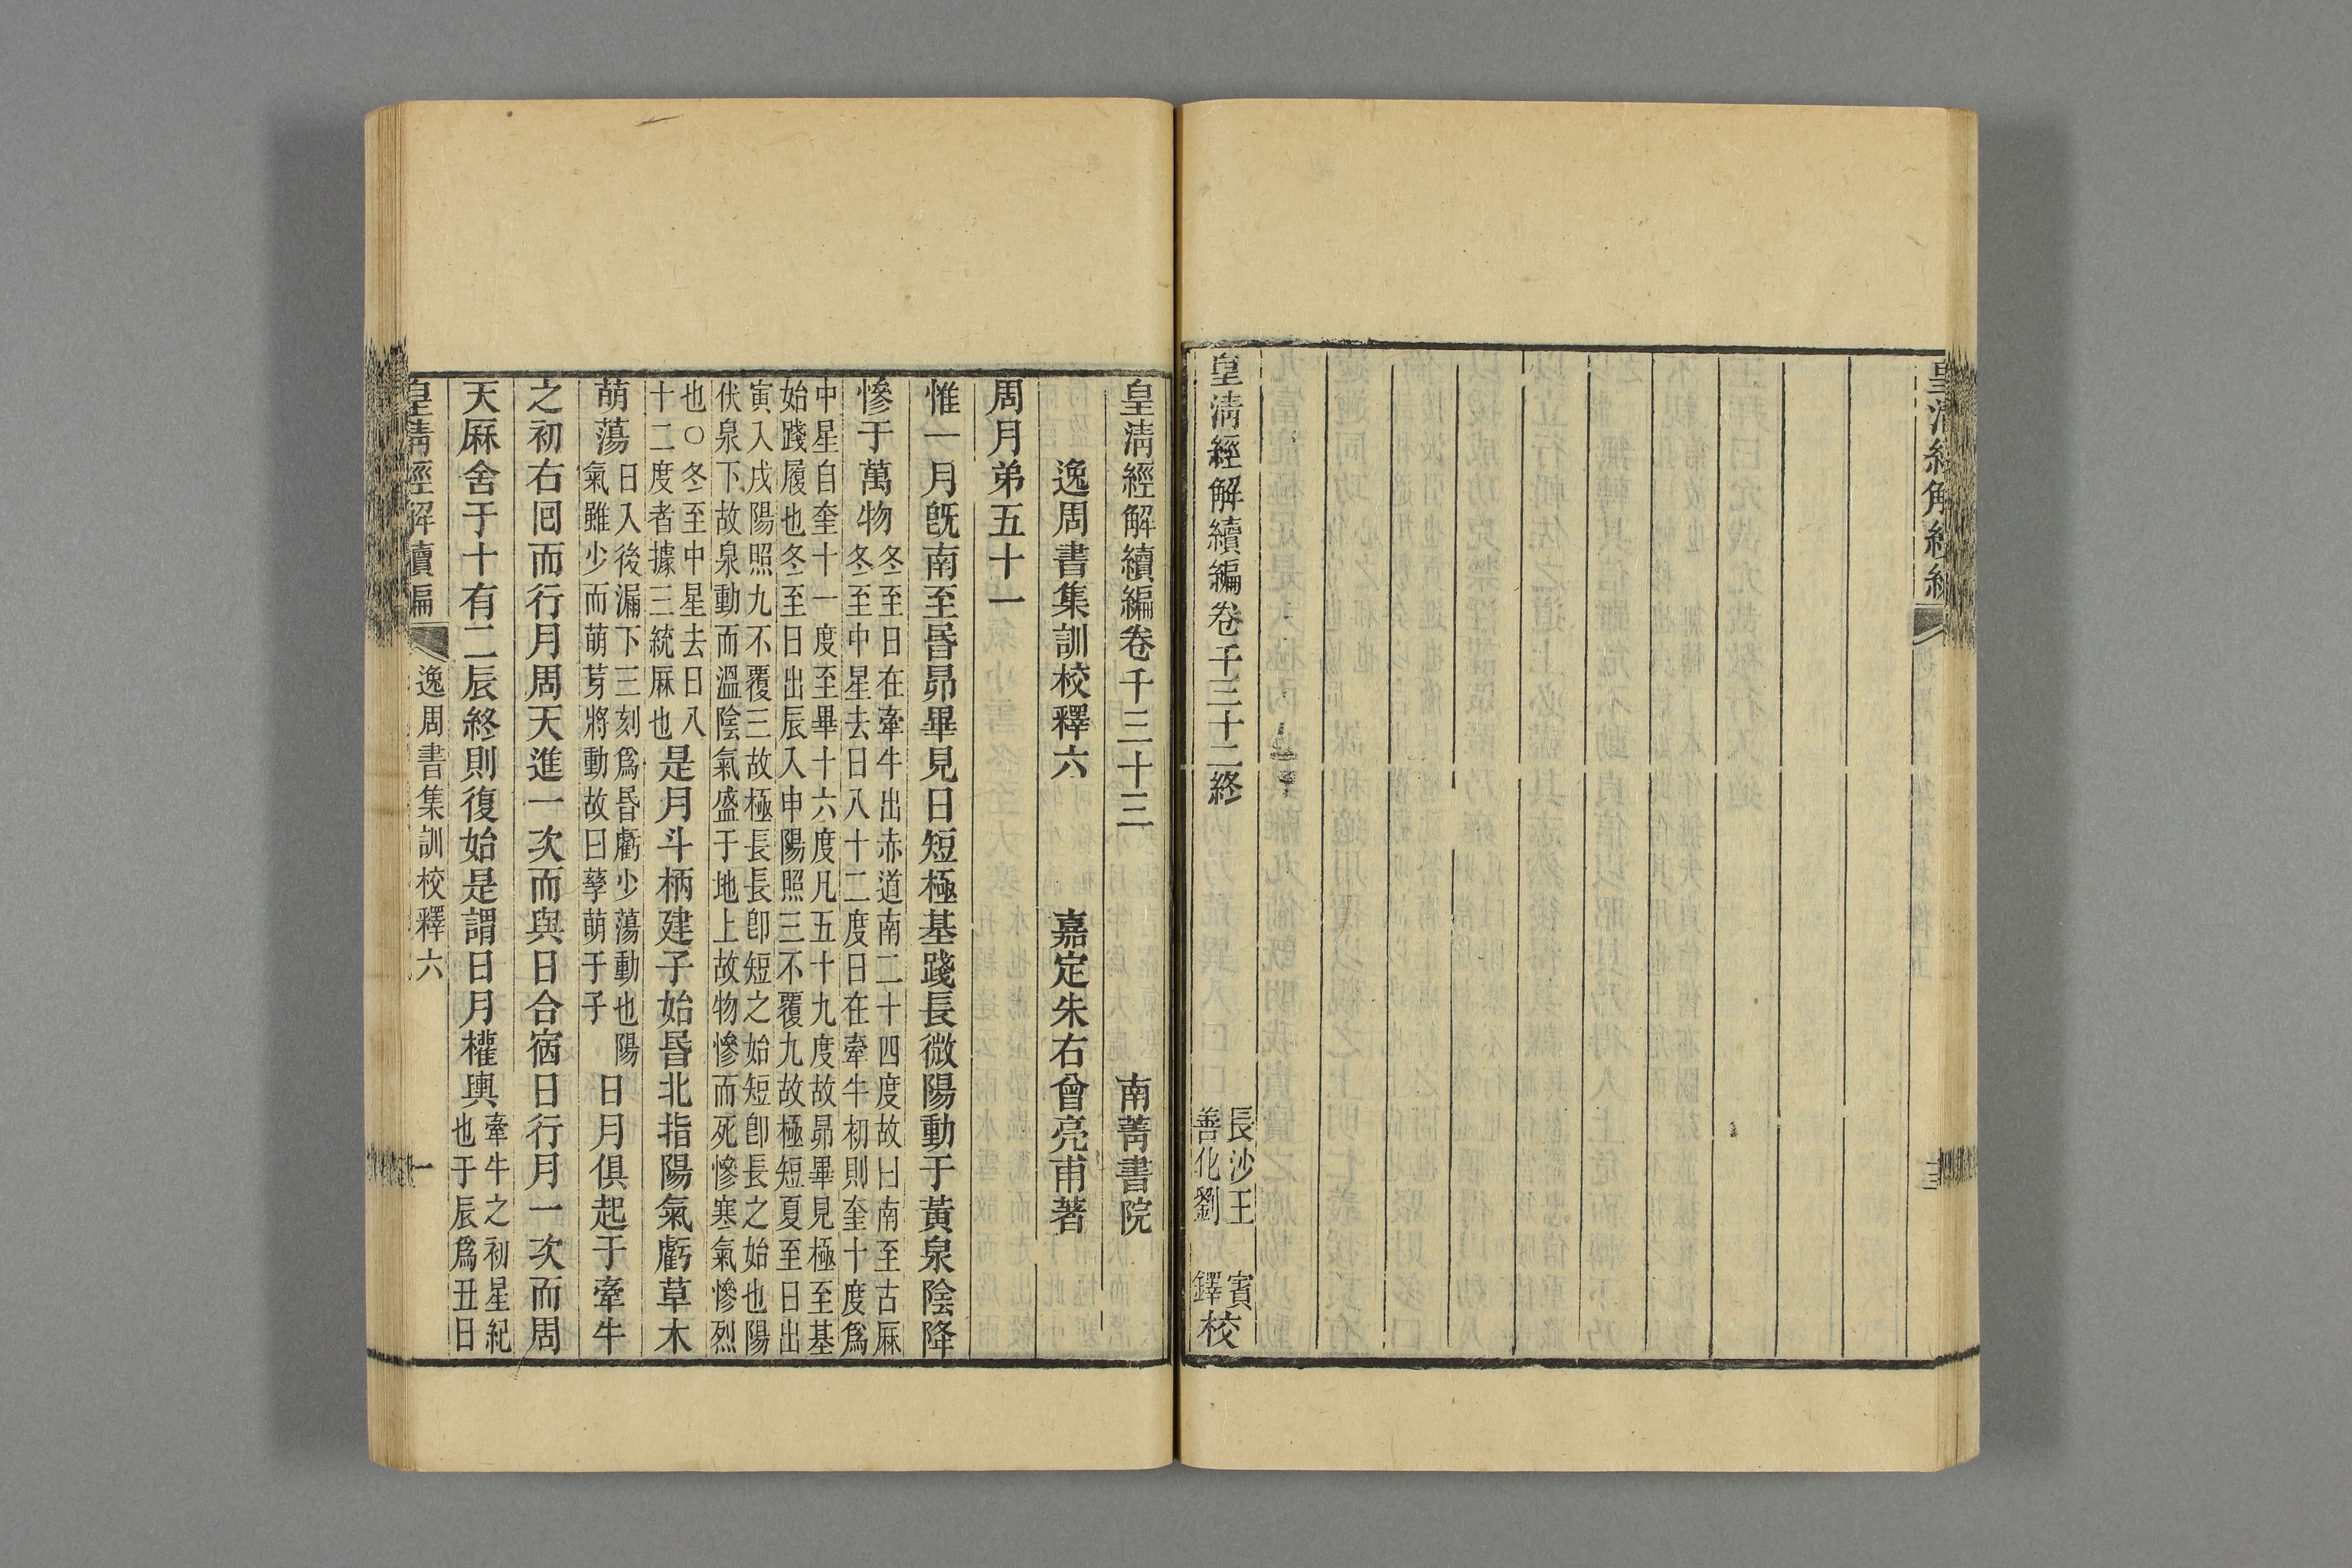 皇淸經解續編卷千三十二終
長沙王　賓
善化劉　鐸
校
皇淸經解續編卷千三十三　南菁書院
逸周書集訓校釋六　嘉定朱右曾亮甫著
周月弟五十一
惟一月旣南至昬昴畢見日短極基踐長微陽動于黃泉陰降
慘于萬物
冬至日在牽牛出赤道南二十四度故曰南至古厤
冬至中星去日八十二度日在牽牛初則奎十度爲
中星自奎十一度至畢十六度凡五十九度故昴畢見極至基
始踐履也冬至日出辰入申陽照三不覆九故極短夏至日出
寅入戌陽照九不覆三故極長長卽短之始短卽長之始也陽
伏泉下故泉動而溫陰氣盛于地上故物慘而死慘寒氣慘烈
也○冬至中星去日八
十二度者據三統厤也
是月斗柄建子始昬北指陽氣虧草木
萌蕩
日入後漏下三刻爲昬虧少蕩動也陽
氣雖少而萌芽將動故曰孳萌于子
日月俱起于牽牛
之初右回而行月周天進一次而與日合宿日行月一次而周
天厤舍于十有二辰終則復始是謂日月權輿
牽牛之初星紀
也于辰爲丑日
皇淸經解續編
逸周書集訓校釋六
一